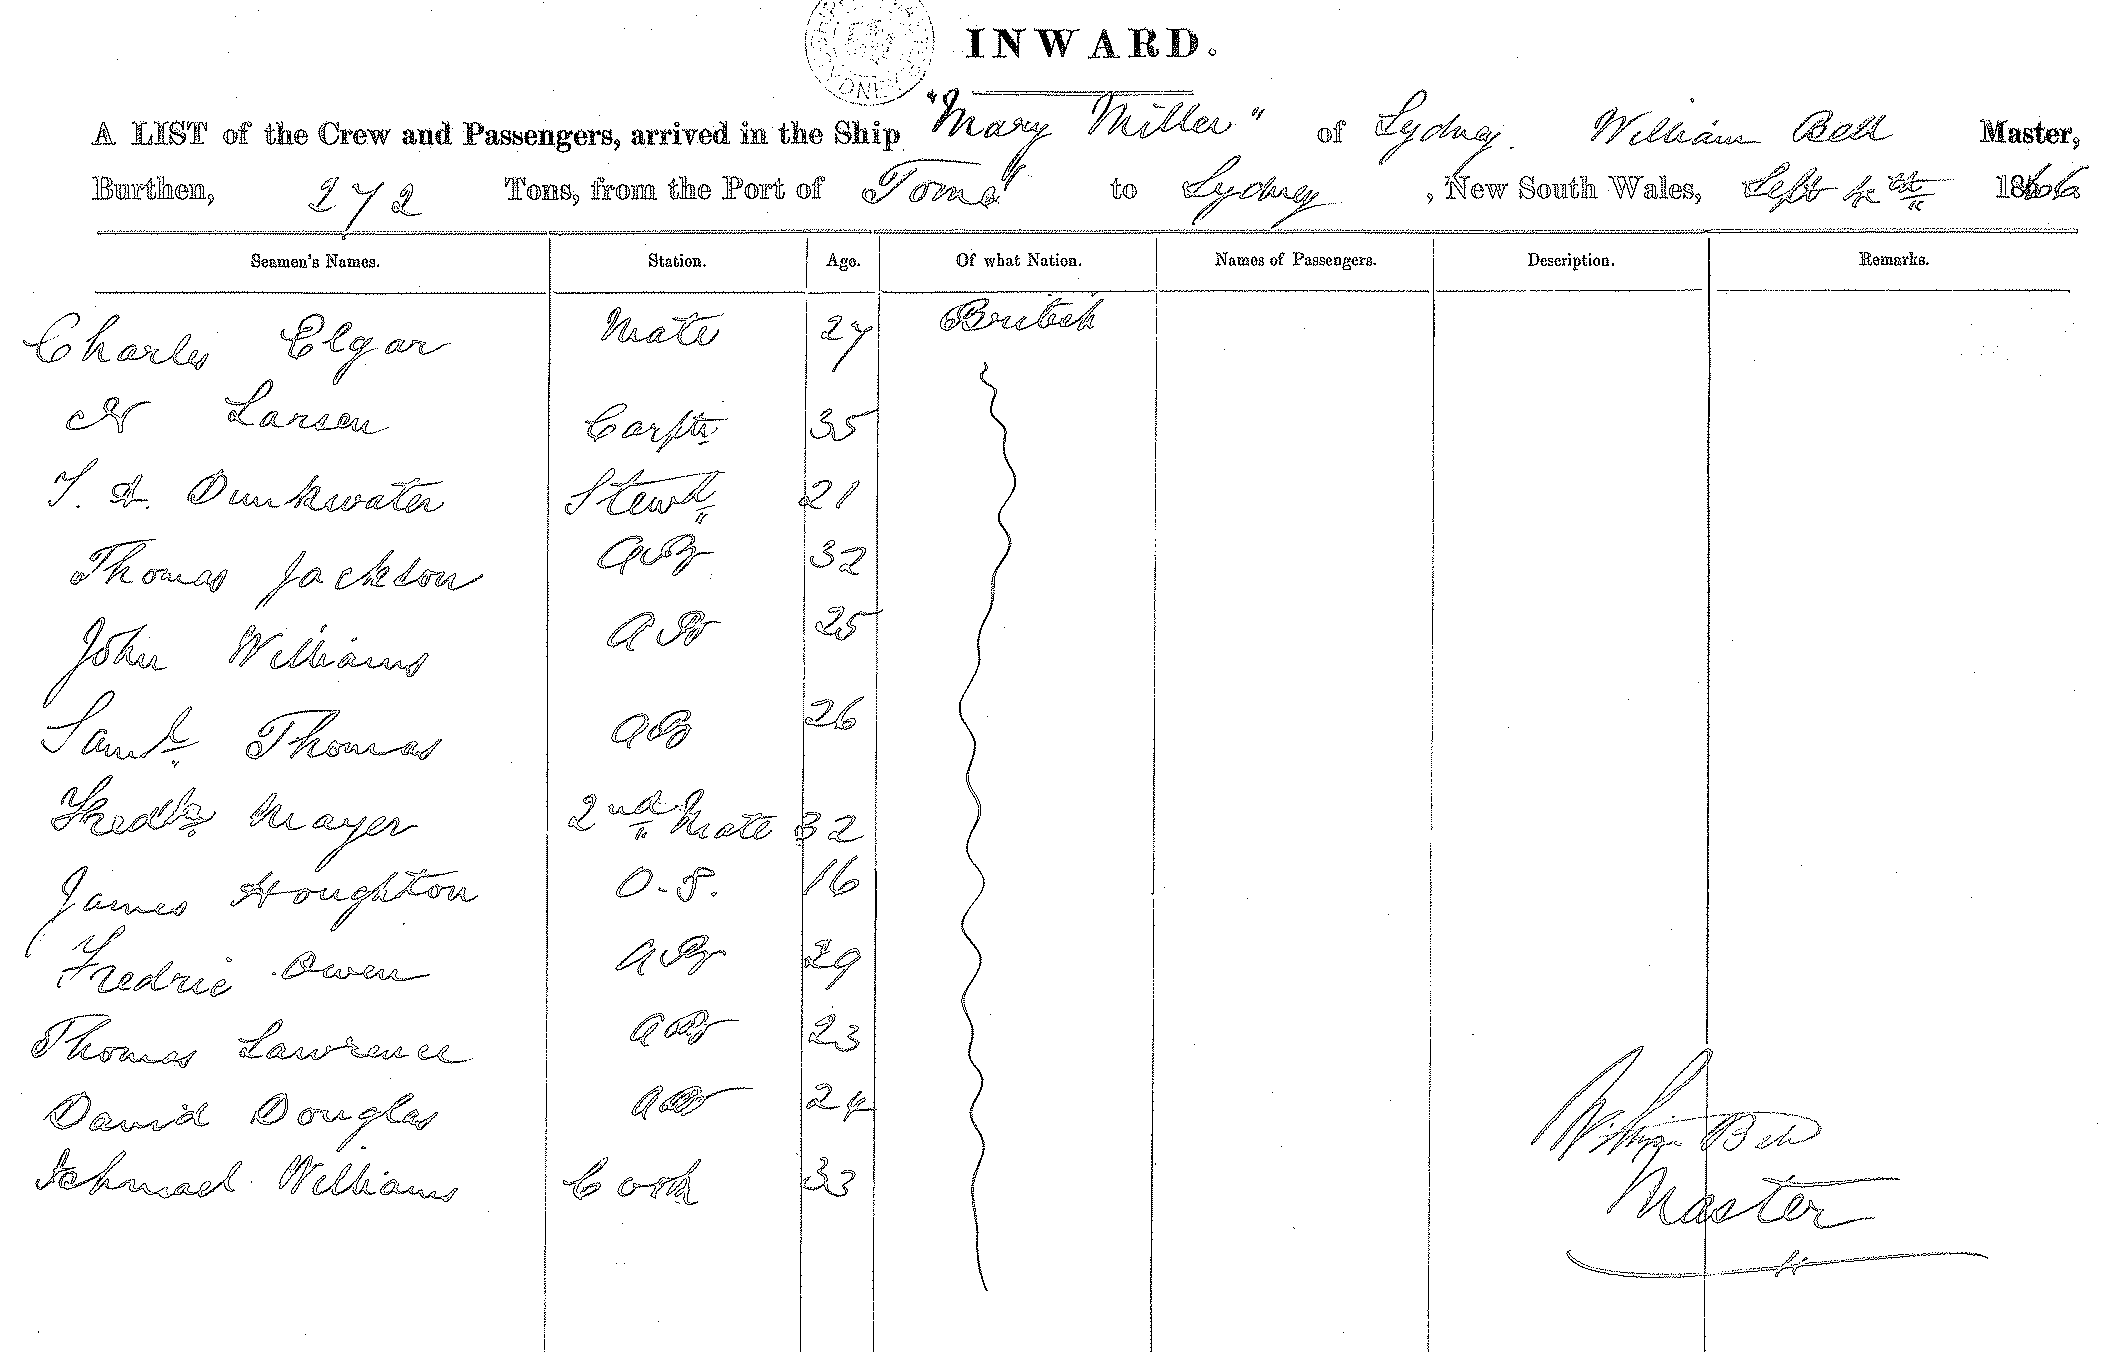 INWARD.
A LIST of the Crew and Passengers, arrived in the Ship "Mary Miller" of Sydney. William Bell Master,
Burthen, 272 Tons, from the Port of to Sydney, New South Wales, Sept 4th 1866
Seamen's Names. Station. Age. Of what Nation. Names of Passengers. Description. Remarks.
Charles Elgar Mate 27 British
N Larsen Carptr 35
T. A. Dunkwater Stewd 21
Thomas Jackson AB 32
John Williams AB 25
Saml Thomas AB 26
Fredk Mayer 2nd Mate 32
James Houghton O.S. 16
Fredric Owen AB 29
Thomas Lawrence AB 23
David Douglas AB 24
Ishmael Williams Cook 33
William Bell
Master